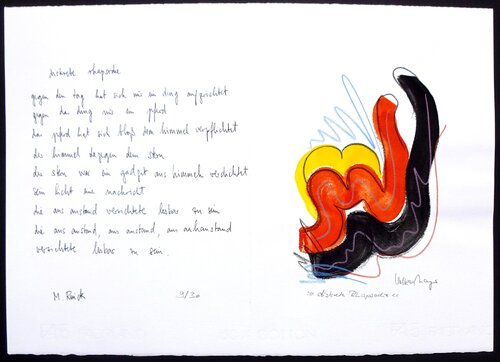 diskrete rhapsodie
gegen den tag hat sich mir ein ding aufgerichtet
gegen das ding mir ein pferd
das pferd hat sich bloß dem himmel verpflichtet
der himmel dagegen dem stern
der stern war ein gedicht aus himmeln verdichtet
sein licht nachricht
die aus anstand verzichtete lesbar zu sein
die aus anstand, aus anstand, aus anstand
verzichtete lesbar zu sein.
M. Rinck
9/30
Rhapsodie